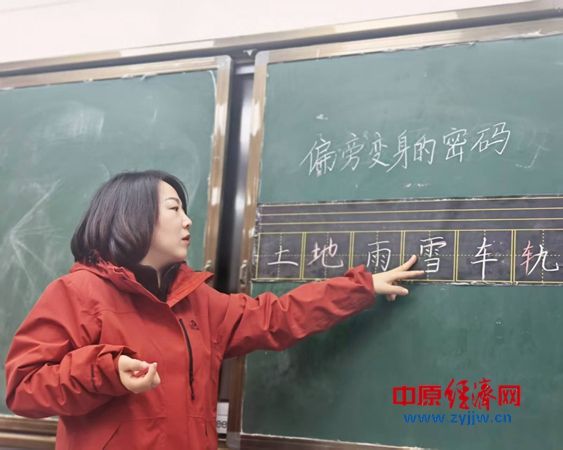 偏旁变身的密码
土地雨雪车轨
中原经济网
www.zyjjw.cn